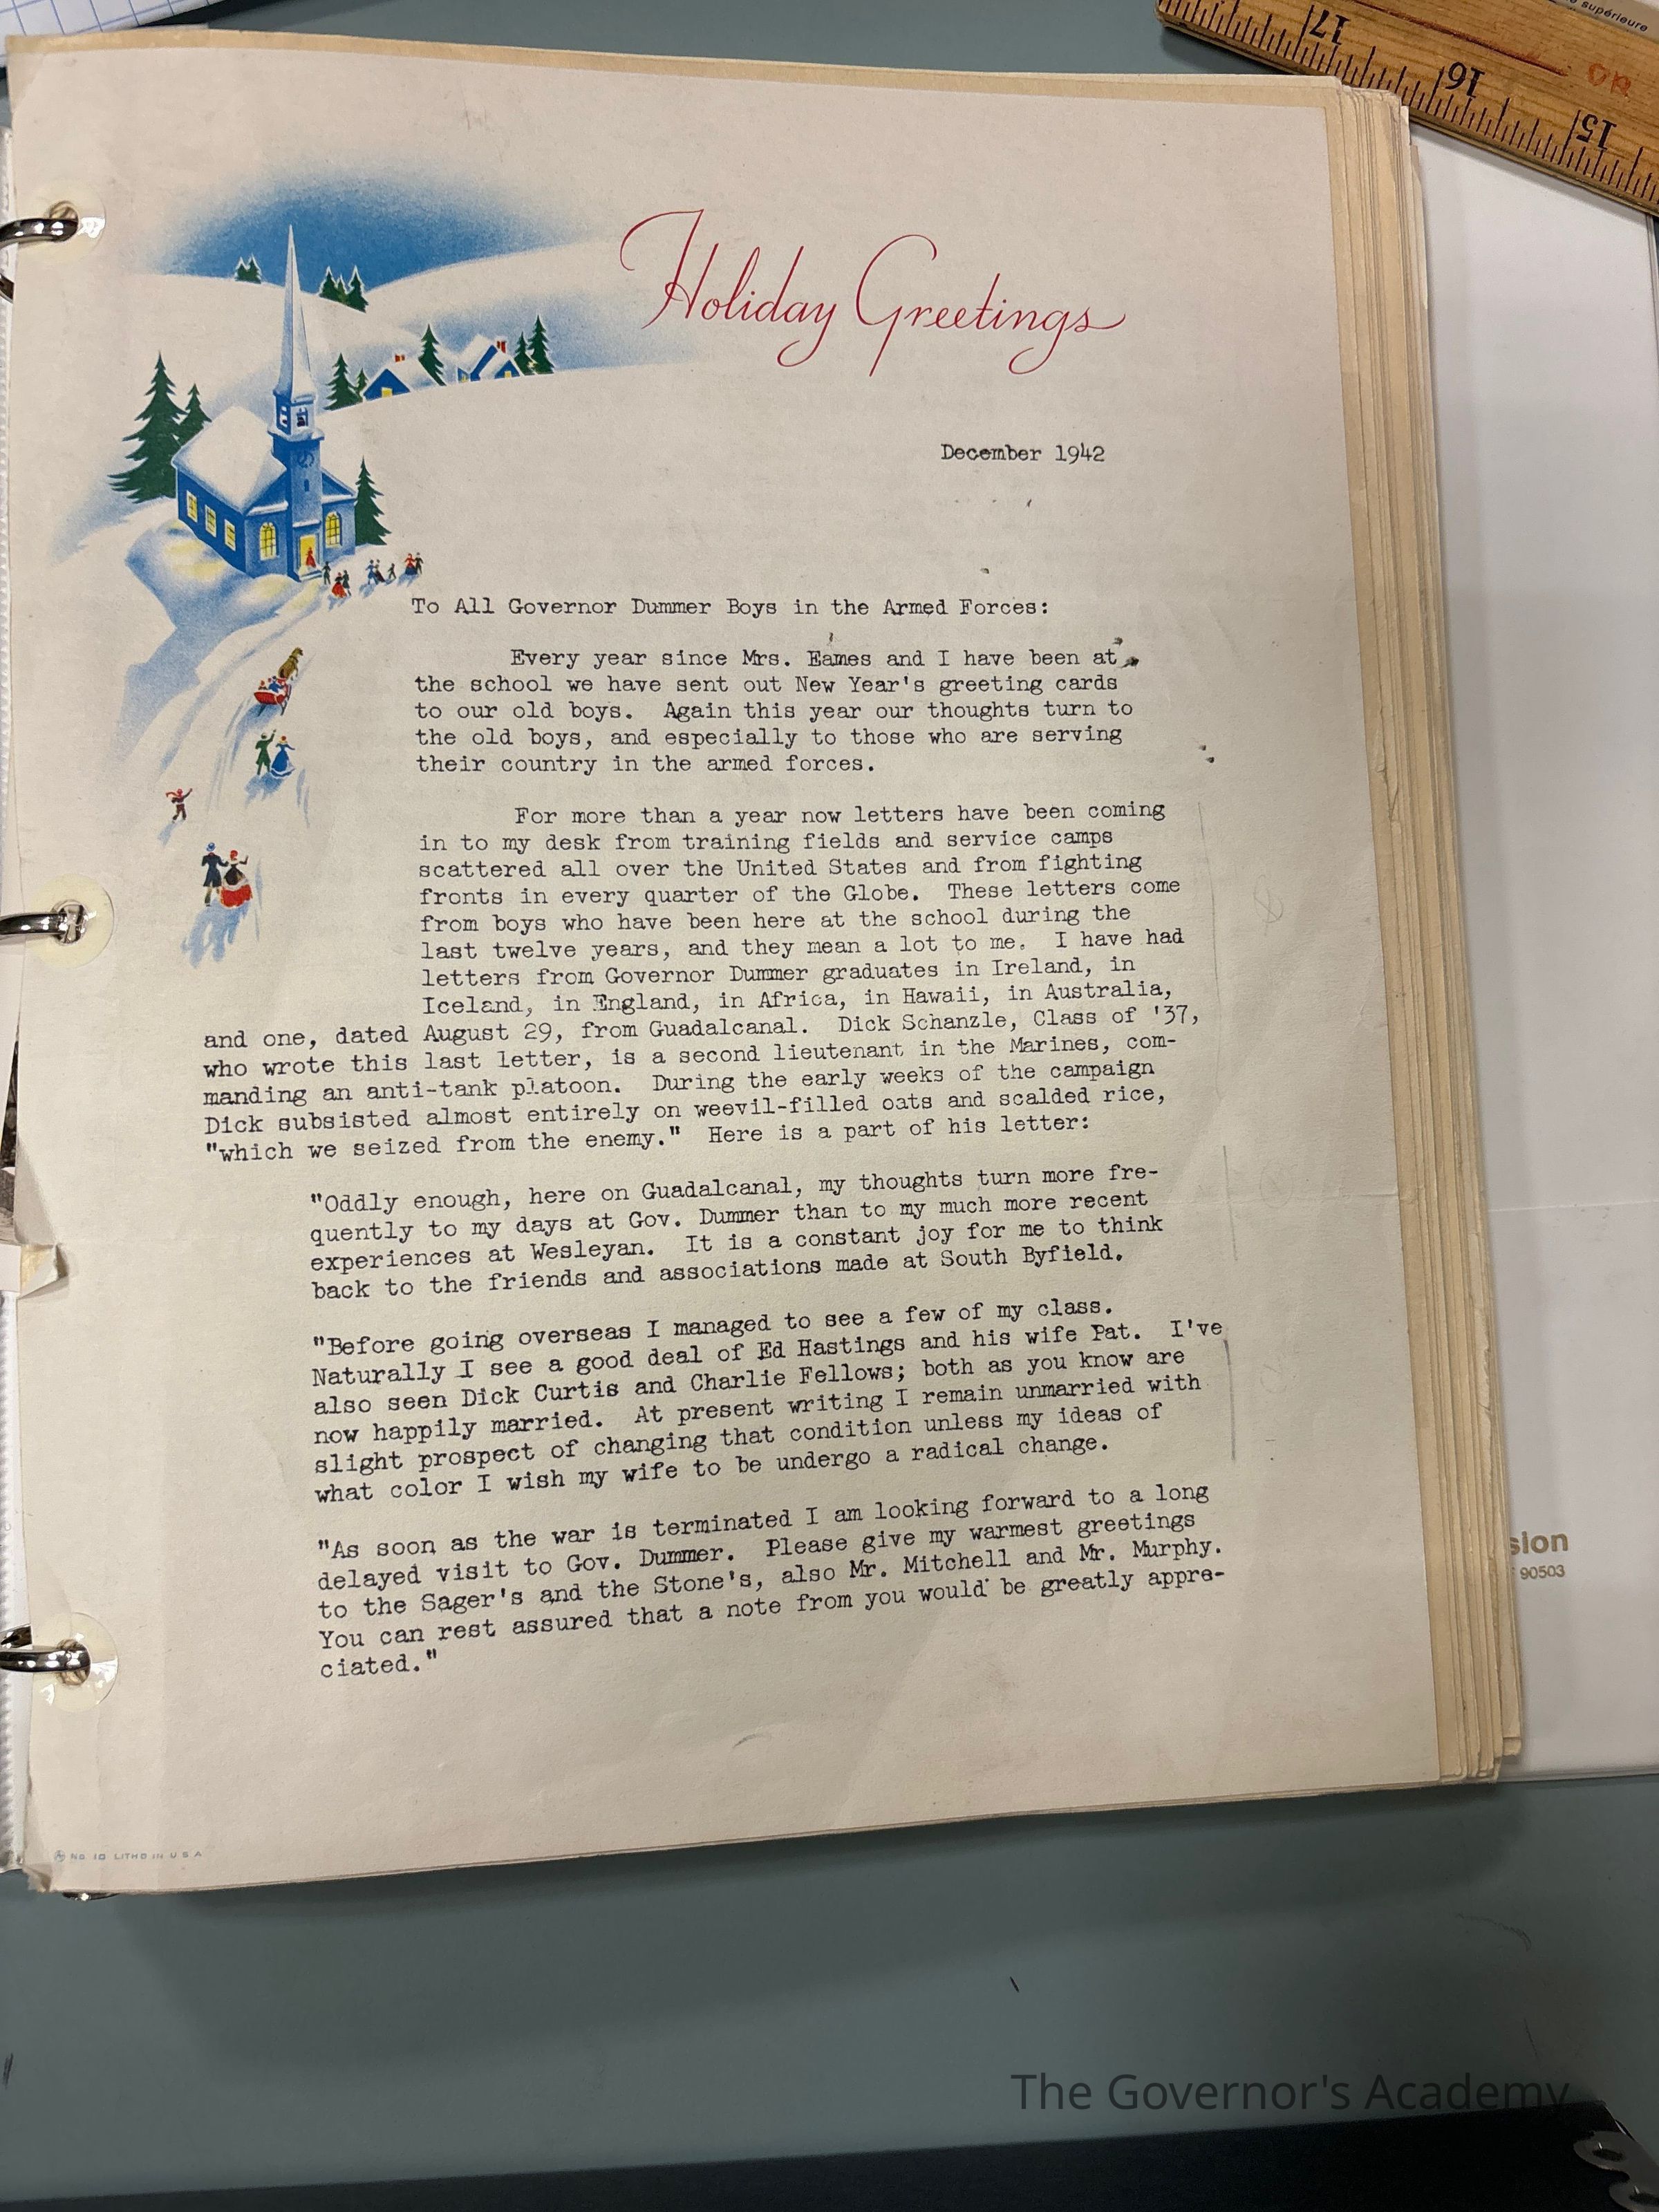 supérieure
17
16
15
OR
Holiday Greetings
December 1942
To All Governor Dummer Boys in the Armed Forces:
Every year since Mrs. Eames and I have been at
the school we have sent out New Year's greeting cards
to our old boys. Again this year our thoughts turn to
the old boys, and especially to those who are serving
their country in the armed forces.
For more than a year now letters have been coming
in to my desk from training fields and service camps
scattered all over the United States and from fighting
fronts in every quarter of the Globe. These letters come
from boys who have been here at the school during the
last twelve years, and they mean a lot to me. I have had
letters from Governor Dummer graduates in Ireland, in
Iceland, in England, in Africa, in Hawaii, in Australia,
and one, dated August 29, from Guadalcanal. Dick Schanzle, Class of '37,
who wrote this last letter, is a second lieutenant in the Marines, com-
manding an anti-tank platoon. During the early weeks of the campaign
Dick subsisted almost entirely on weevil-filled oats and scalded rice,
"which we seized from the enemy." Here is a part of his letter:
"Oddly enough, here on Guadalcanal, my thoughts turn more fre-
quently to my days at Gov. Dummer than to my much more recent
experiences at Wesleyan. It is a constant joy for me to think
back to the friends and associations made at South Byfield.
"Before going overseas I managed to see a few of my class.
Naturally I see a good deal of Ed Hastings and his wife Pat. I've
also seen Dick Curtis and Charlie Fellows; both as you know are
now happily married. At present writing I remain unmarried with
slight prospect of changing that condition unless my ideas of
what color I wish my wife to be undergo a radical change.
"As soon as the war is terminated I am looking forward to a long
delayed visit to Gov. Dummer. Please give my warmest greetings
to the Sager's and the Stone's, also Mr. Mitchell and Mr. Murphy.
You can rest assured that a note from you would be greatly appre-
ciated."
sion
90503
No. 10 LITHO IN U S A
The Governor's Academy